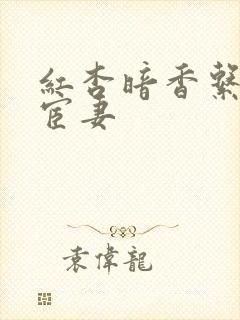 紅杏暗香繫
宦妻
袁偉龍